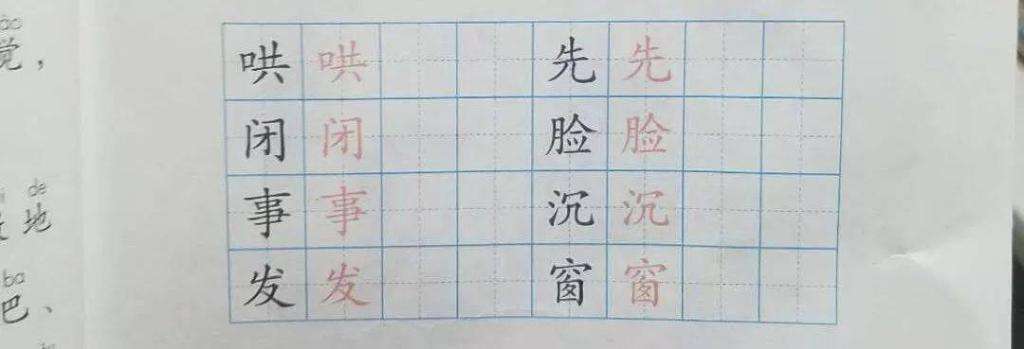 觉，
de
地
ba
巴、
哄 哄 先 先
闭 闭 脸 脸
事 事 沉 沉
发 发 窗 窗